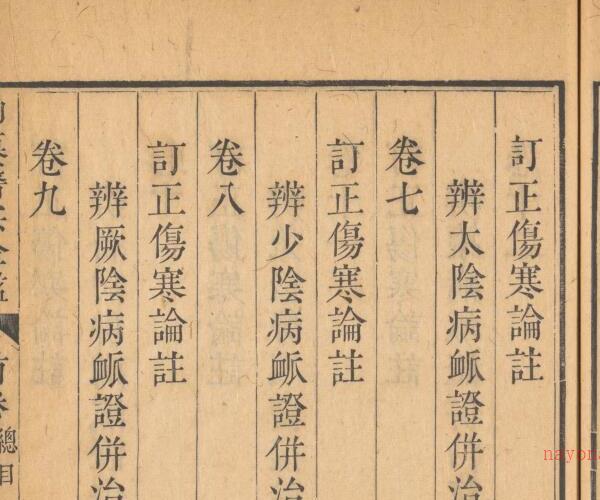 訂正傷寒論註
辨太陰病衇證併治
卷七
訂正傷寒論註
辨少陰病衇證併治
卷八
訂正傷寒論註
辨厥陰病衇證併治
卷九
首卷 總目
nayona